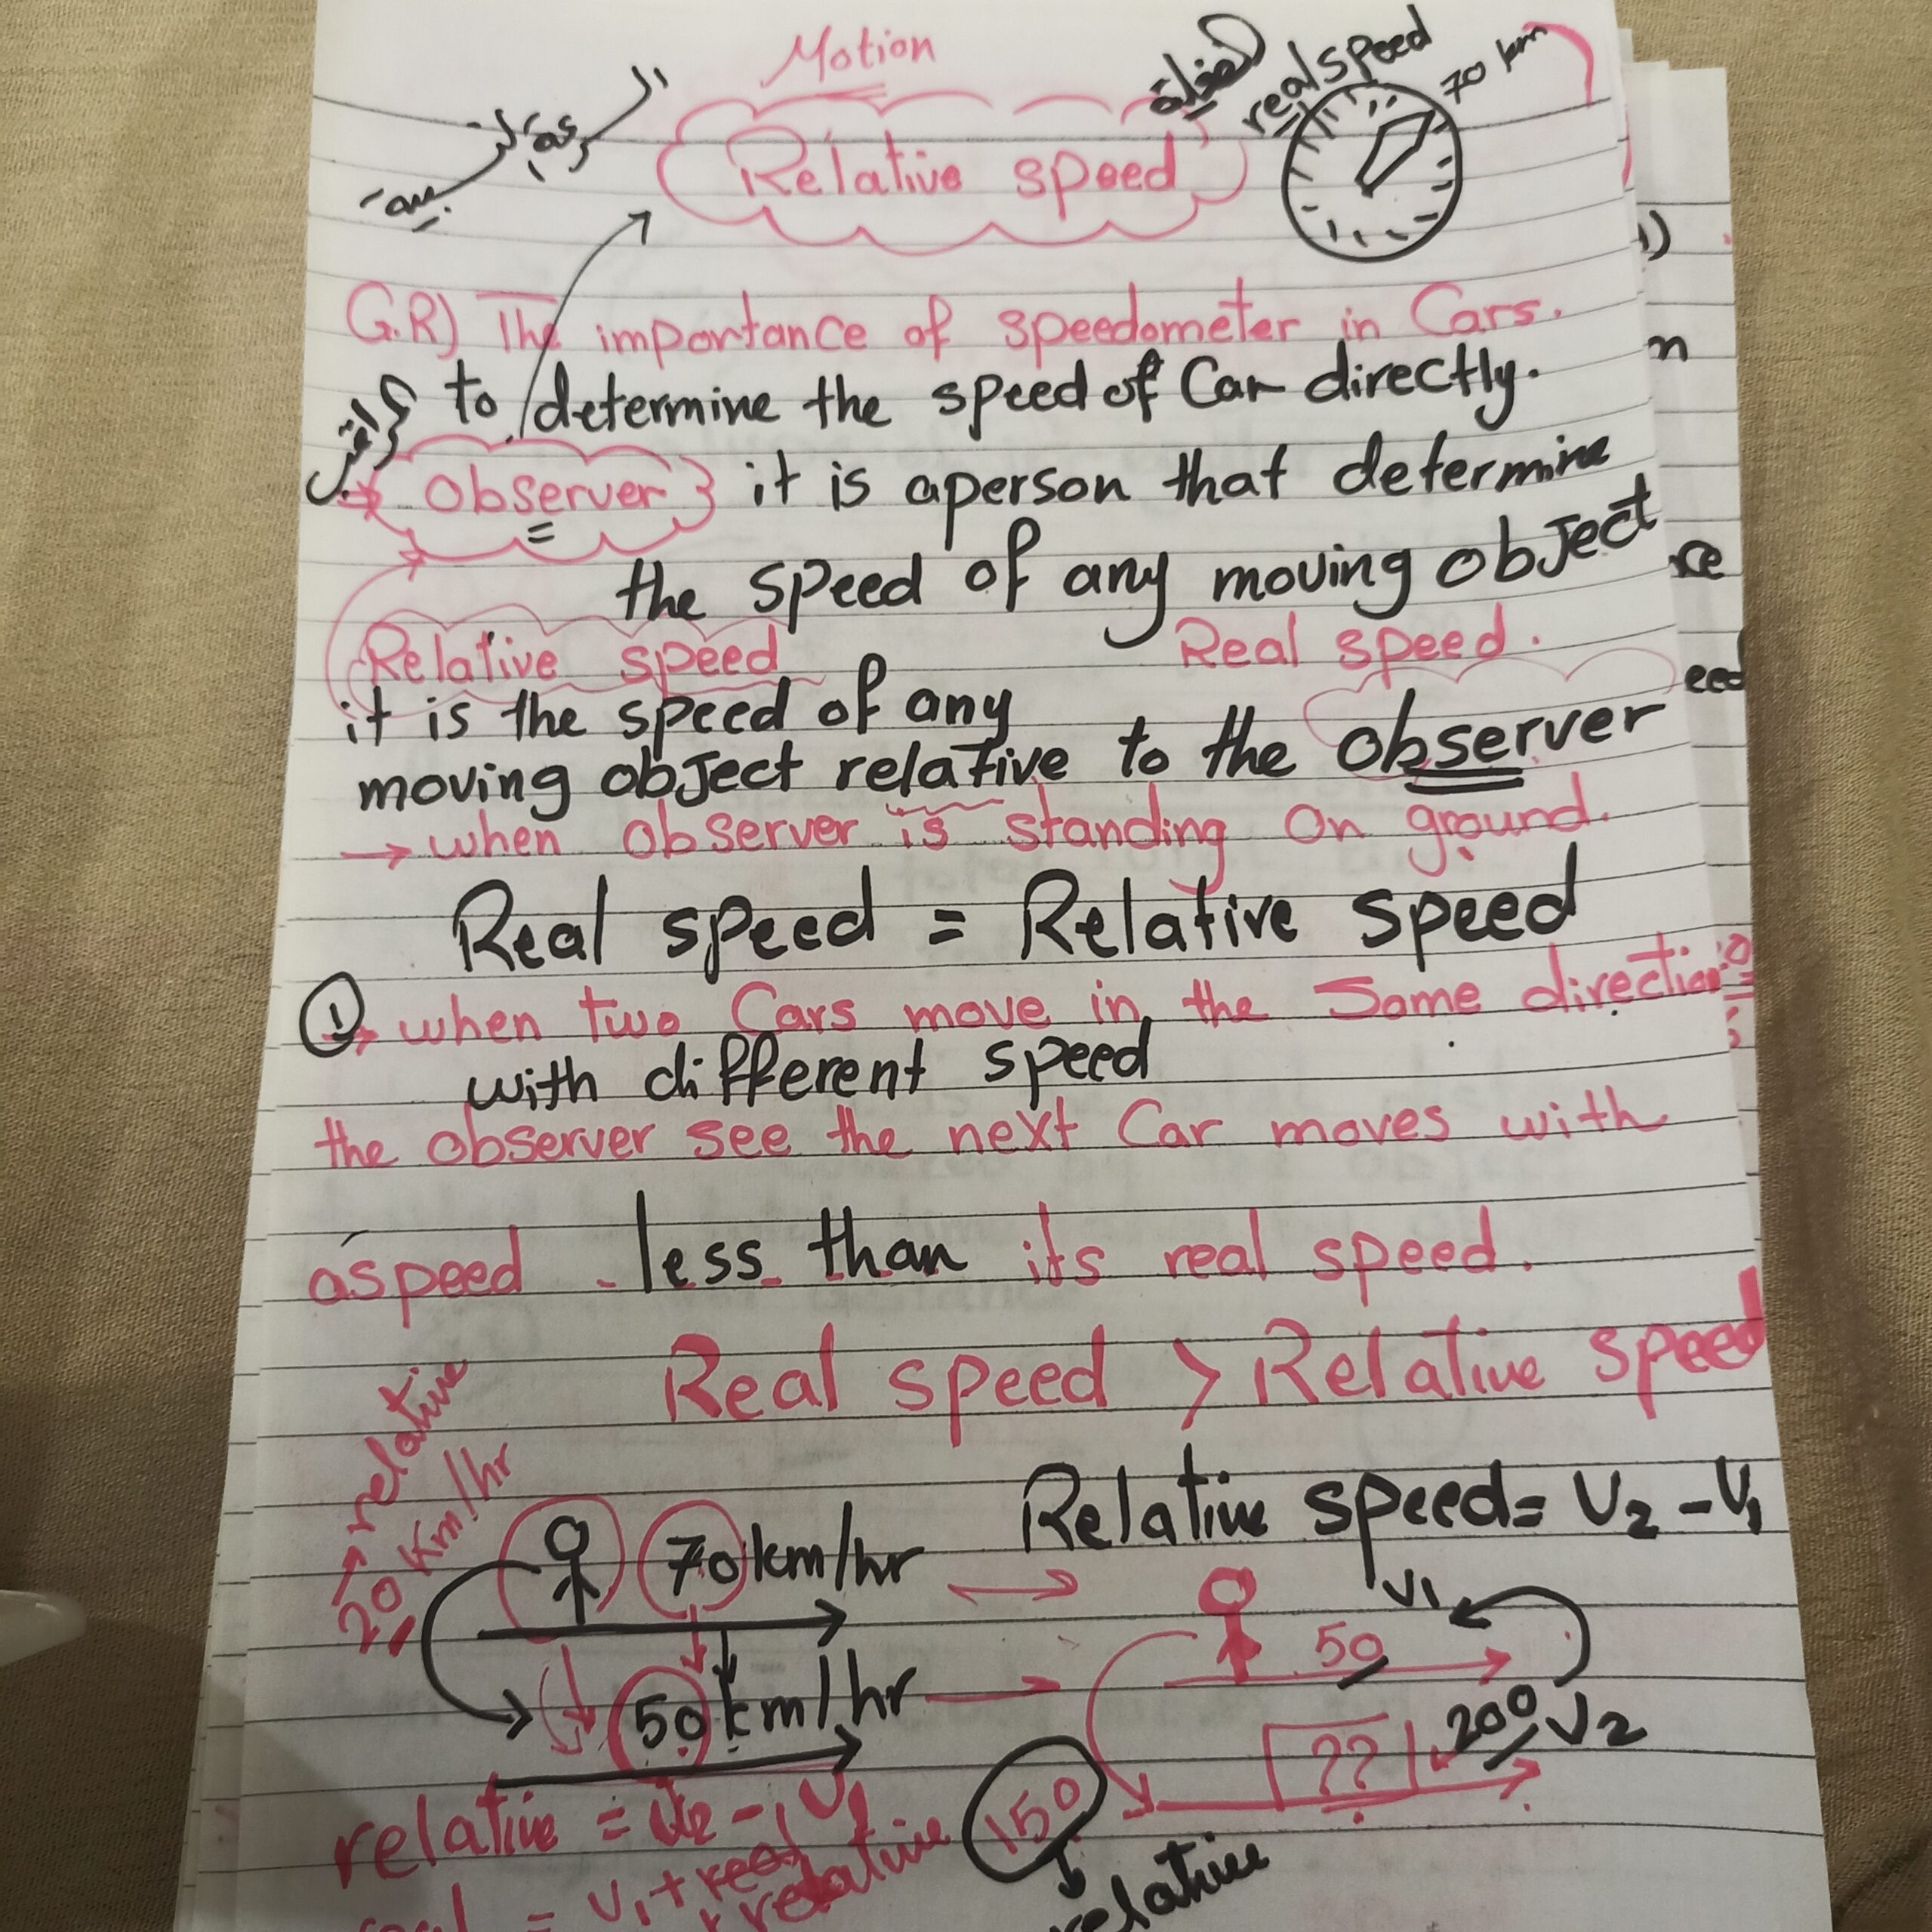 Motion
السرعة النسبية
Relative speed
real speed
70 km
G.R) The importance of speedometer in Cars.
to determine the speed of Car directly.
المراقب
Observer
it is aperson that determine
the speed of any moving object
Relative speed
Real speed.
it is the speed of any
moving object relative to the observer
→ when observer is standing on ground.
Real speed = Relative speed
① → when two Cars move in the Same direction
with different speed
the observer see the next Car moves with
aspeed less than its real speed.
Real speed > Relative speed
→ relative
20 Km/hr
Relative speed = V2 - V1
70 km/hr
50 km/hr
V1
50
200 V2
??
150
relative
relative = V2 - V1
= V1 + relative